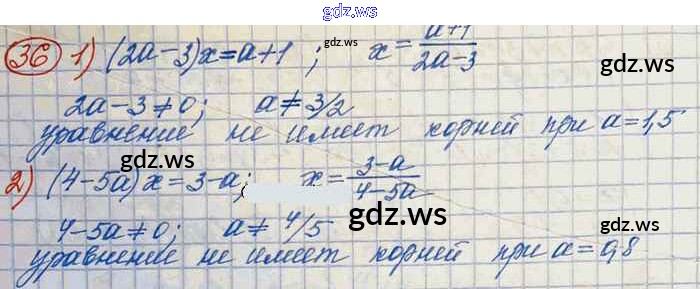 gdz.ws
gdz.ws
36 1) (2a-3)x=a+1 ; x = a+1/2a-3
2a-3≠0; a≠3/2
уравнение не имеет корней при a=1,5
gdz.ws
gdz.ws
2) (4-5a)x=3-a; x = 3-a/4-5a
gdz.ws
gdz.ws
4-5a≠0; a≠ 4/5
уравнение не имеет корней при a=0,8
gdz.ws